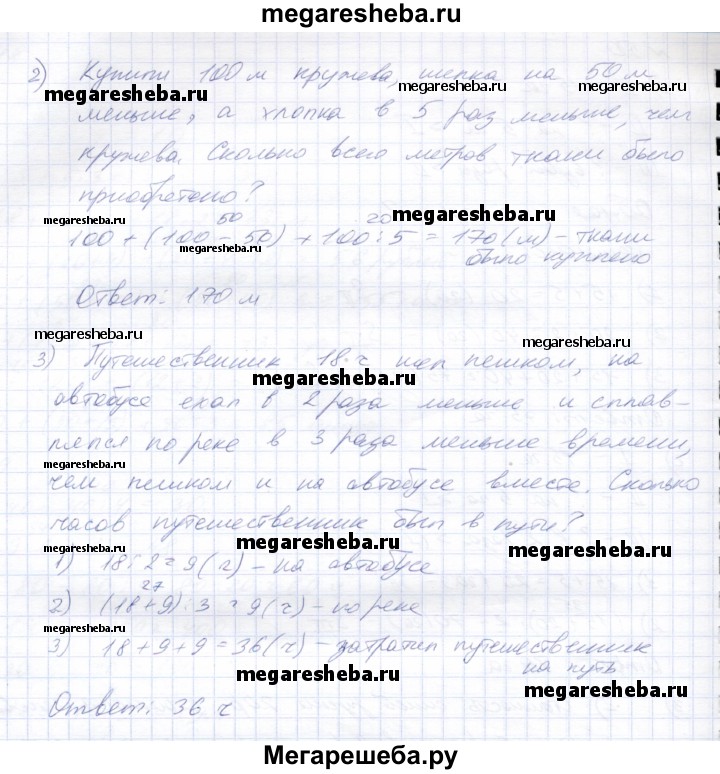 megaresheba.ru
2) Купили 100 м кружева, шелка на 50 м
megaresheba.ru megaresheba.ru megaresheba.ru
меньше, а хлопка в 5 раз меньше, чем
кружева. Сколько всего метров ткани было
приобретено?
megaresheba.ru 50 20 megaresheba.ru
100 + (100 - 50) + 100 : 5 = 170 (м) - ткани
megaresheba.ru было куплено
Ответ: 170 м
megaresheba.ru megaresheba.ru
3) Путешественник 18 ч шел пешком, на
megaresheba.ru
автобусе ехал в 2 раза меньше и сплав-
лялся по реке в 3 раза меньше времени,
megaresheba.ru megaresheba.ru
чем пешком и на автобусе вместе. Сколько
часов путешественник был в пути?
megaresheba.ru megaresheba.ru
1) 18 : 2 = 9 (ч) - на автобусе
27
2) (18 + 9) : 3 = 9 (ч) - по реке
megaresheba.ru
3) 18 + 9 + 9 = 36 (ч) - затратил путешественник
megaresheba.ru на путь
megaresheba.ru
Ответ: 36 ч
Мегарешеба.ру